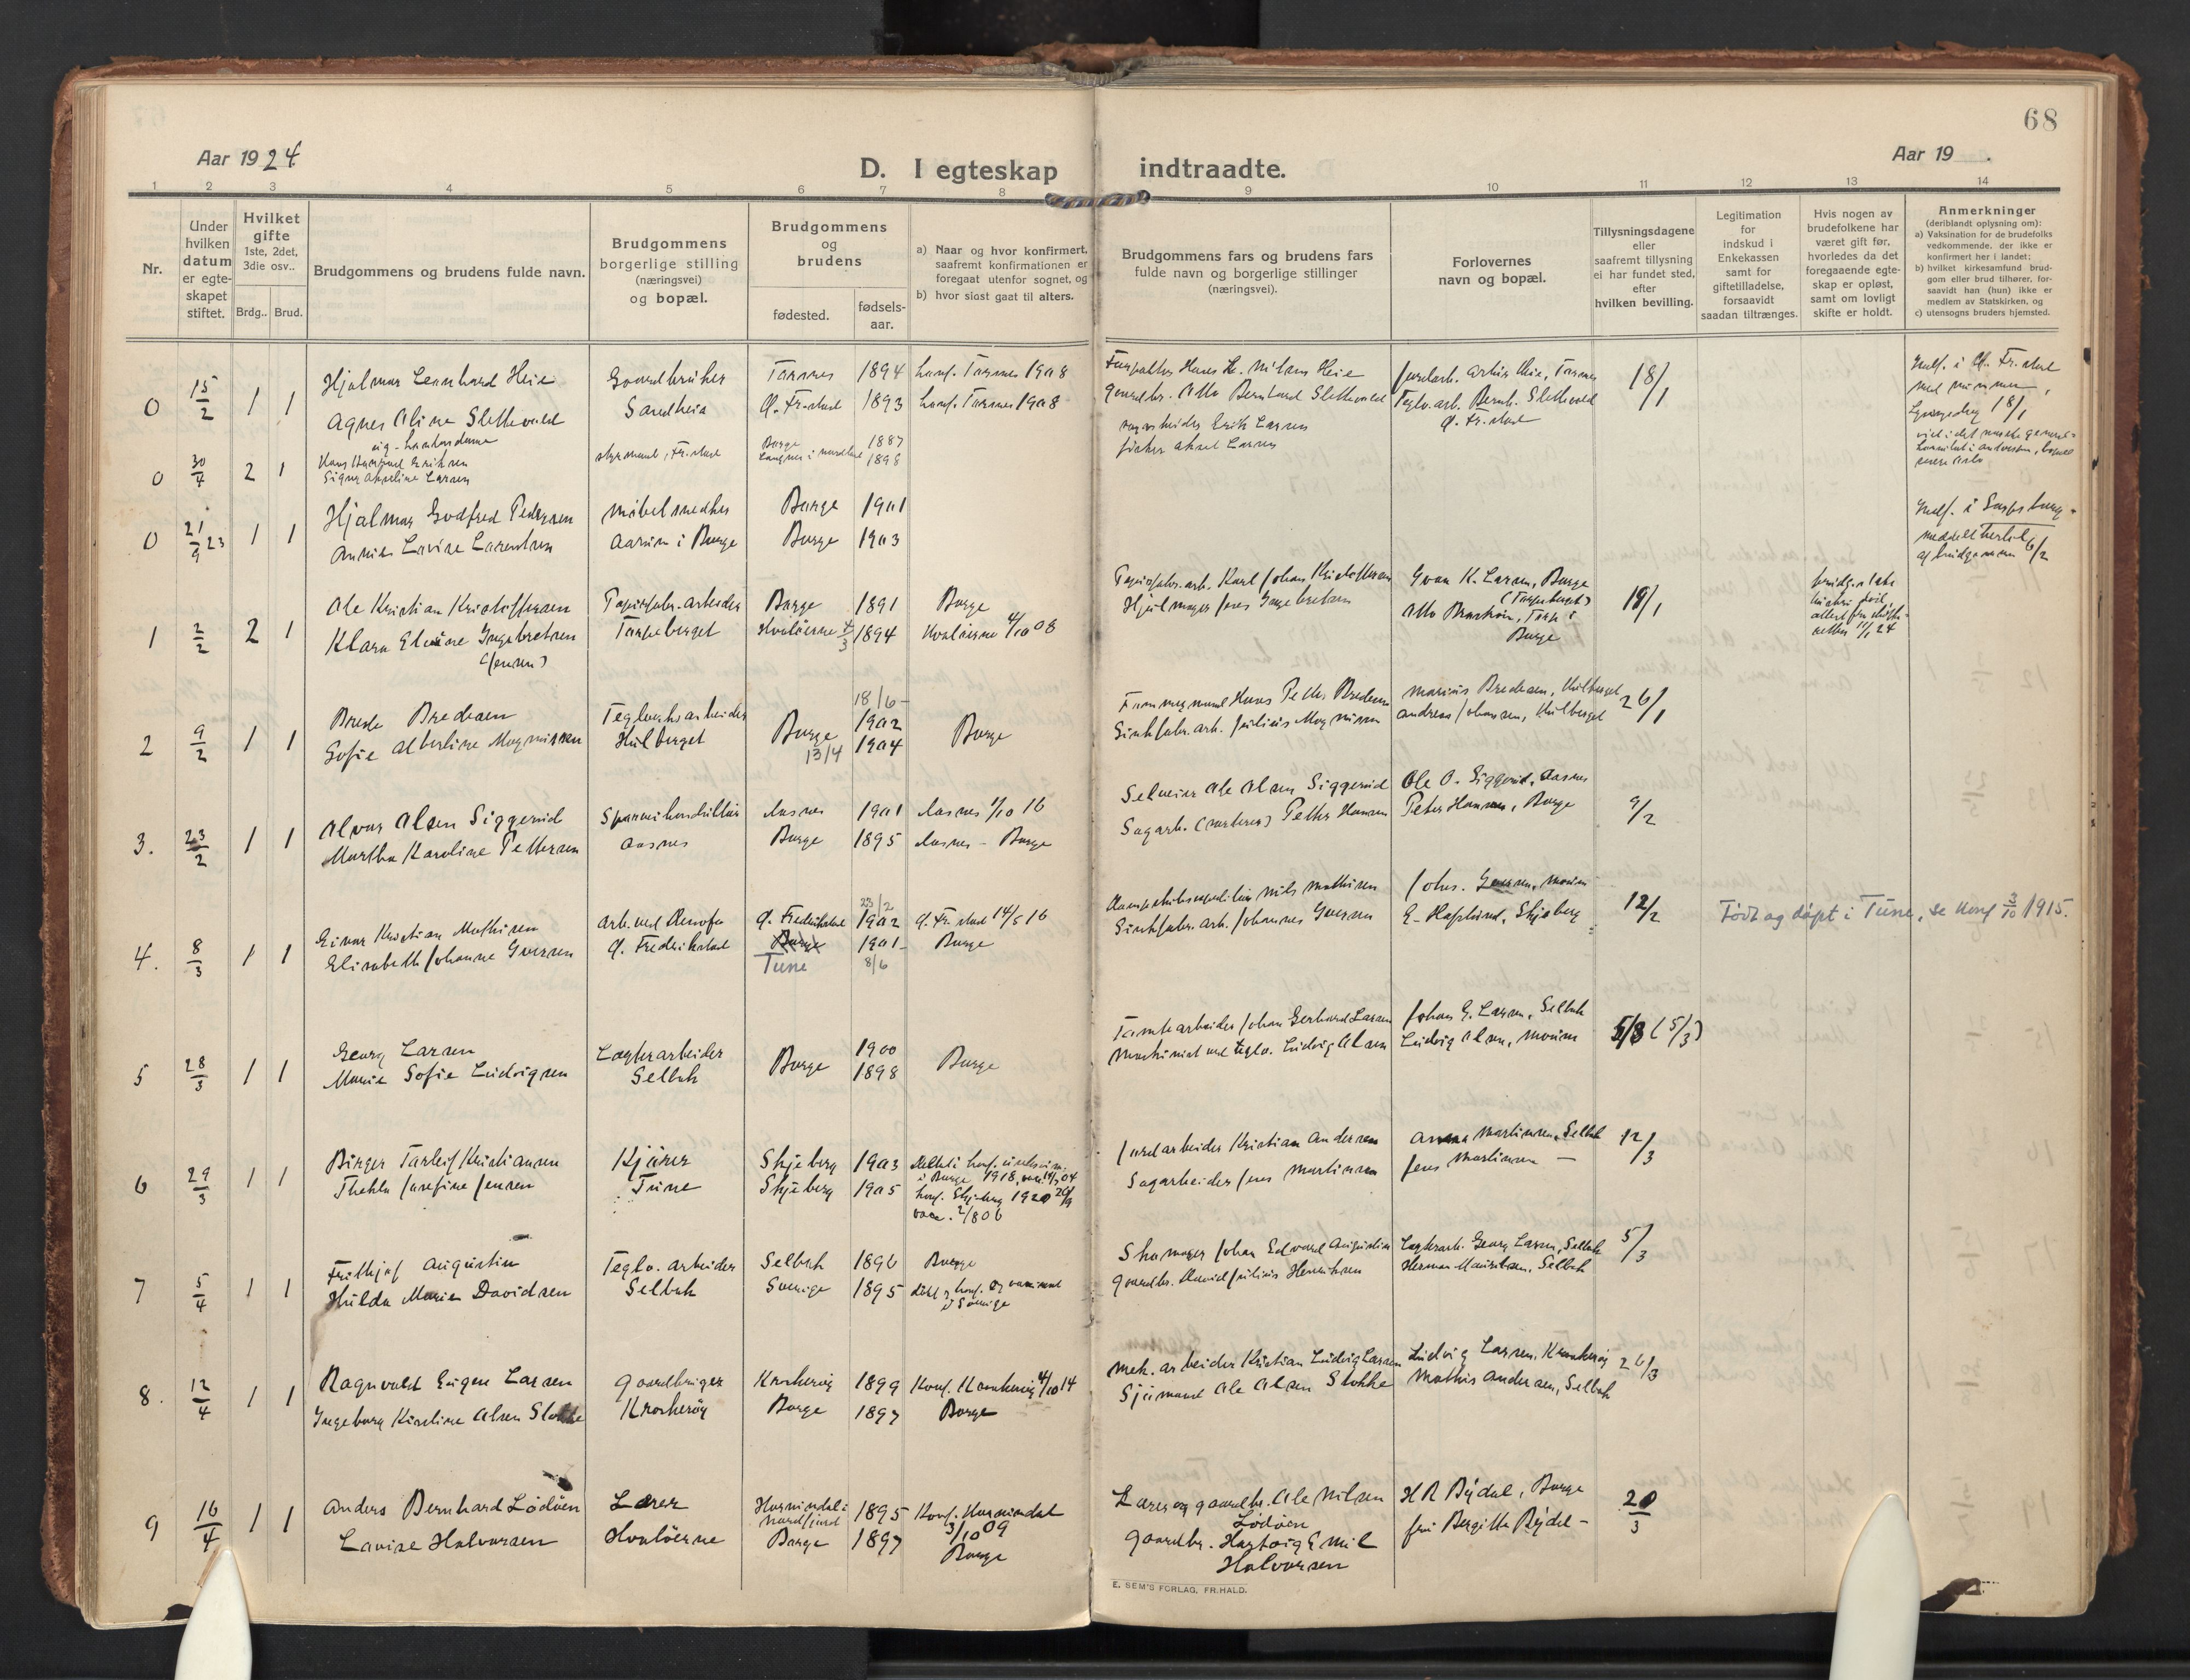 68
Aar 1924.
D. I egteskap indtraadte.
Aar 19 .
1 2 3 4 5 6 7 8 9 10 11 12 13 14
Nr.
Under hvilken datum er egteskapet stiftet.
Hvilket gifte
1ste, 2det, 3die osv..
Brdg.. Brud.
Brudgommens og brudens fulde navn.
Brudgommens borgerlige stilling (næringsvei) og bopæl.
Brudgommens og brudens
fødested.
fødsels-aar.
a) Naar og hvor konfirmert, saafremt konfirmationen er foregaat utenfor sognet, og
b) hvor sidst gaat til alters.
Brudgommens fars og brudens fars fulde navn og borgerlige stillinger (næringsvei).
Forlovernes navn og bopæl.
Tillysningsdagene eller saafremt tillysning ei har fundet sted, efter hvilken bevilling.
Legitimation for indskud i Enkekassen samt for giftetilladelse, forsaavidt saadan tiltrænges.
Hvis nogen av brudefolkene har været gift før, hvorledes da det foregaaende egteskap er opløst, samt om lovligt skifte er holdt.
Anmerkninger
(deriblandt oplysning om):
a) Vaksination for de brudefolks vedkommende, der ikke er konfirmert her i landet;
b) hvilket kirkesamfund brudgom eller brud tilhører, forsaavidt han (hun) ikke er medlem av Statskirken, og
c) utensogns bruders hjemsted.
0 15/2 1 1
Hjalmar Leonhard Heie
Agnes Aline Slettevold
Gaardbruker
Torsnes 1894 konf. Torsnes 1908
Gl. Fr.stad 1893 konf. Torsnes 1908
Gaardbr. Otto Bernhard Slettevold
18/1
0 30/4 2 1
Signe Akseline Larsen
styrmand, Fr.stad
Borge 1887
1898
Erik Larsen
fisker Aksel Larsen
0 21/9 23 1 1
Hjalmar Godfred Pedersen
Annie Lovise Lorentzen
Møbelsnedker
Aarum i Borge
Borge 1901
Borge 1903
1 2/2 2 1
Ole Kristian Kristoffersen
Klara Elvine Ingebretsen
(Jensen)
Papirfabr. arbeider
Torpeberget
Borge 1891 Borge
Hvaløerne 4/3 1894 Hvaløerne 4/10 08
Papirfabr. arb. Karl Johan Kristoffersen
Hjulmager Jens Ingebretsen
K. Larsen, Borge
(Torpeberget)
Borge
18/1
2 9/2 1 1
Brede Bredesen
Sofie Albertine Magnussen
Teglverksarbeider
Hulberget
Borge
13/4
18/6-
1902
1904
Borge
Hans Petter Bredesen
Sinkfabr. arb. Julius Magnussen
Marius Bredesen, Hulberget
Andreas Johansen, Hulberget
26/1
3. 23/2 1 1
Olvar Olsen Siggerud
Martha Karoline Pettersen
Aasnes
Aasnes 1901 Aasnes 1/10 16
Borge 1895 Aasnes - Borge
Selveier Ole Olsen Siggerud
Sagarb. Petter Hansen
Ole O. Siggerud, Aasnes
Peter Hansen, Borge
9/2
4. 8/3 1 1
Einar Kristian Mathisen
Elisabeth Johanne Iversen
Gl. Frederikstad
Gl. Fredrikstad 23/2 1902 Gl. Fr.stad 14/5 16
Borge 1901- Borge
Tune 8/6
Nils Mathisen
Sinkfabr. arb. Johannes Iversen
Johs. Iversen, Moum
E. Hafslund, Skjeberg
12/2
Født og døpt i Tune, se konf 3/10 1915.
5 28/3 1 1
Georg Larsen
Marie Sofie Ludvigsen
Lagerarbeider
Selbak
Borge
1900
1898
Borge
Tomtearbeider Johan Gerhard Larsen
Maskinist ved teglv. Ludvig Olsen
Johan G. Larsen, Selbak
Ludvig Olsen, Moum
5/3 (5/3)
6 29/3 1 1
Birger Torleif Kristiansen
Thekla Josefine Jensen
Kjører
Tune
Skjeberg 1903
Skjeberg 1905
konf. Skjeberg 1920
vacc. 2/8 06
Jordarbeider Kristian Andersen
Sagarbeider Jens Martinsen
Anna Martinsen, Selbak
Jens Martinsen —
12/3
7 5/4 1 1
Frithjof Augustin
Hilda Marie Davidsen
Teglv. arbeider
Selbak
Selbak 1896 Borge
Sverige 1895 døbt, konf. og vaccineret
i Sverige
Skomager Johan Edvard Augustin
Gaardbr. David Julius Henriksen
Lagerarb. Georg Larsen, Selbak
Herman Mauritzen, Selbak
5/3
8. 12/4 1 1
Ragnvald Eugen Larsen
Ingeborg Karoline Olsen Stokke
Gaardbruger
Kraakerøy
Kraakerøy 1899 Konf. Kraakerøy 4/10 14
Borge 1897 Borge
Mek. arbeider Kristian Ludvig Larsen
Sjømand Ole Olsen Stokke
Ludvig Larsen, Kraakerøy
Mathis Andersen, Selbak
26/3
9 16/4 1 1
Anders Bernhard Lødøen
Lovise Halvorsen
Lærer
Hvaløerne
Hornindal i
Nordfjord
1895 Konf. Hornindal
3/10 09
Borge 1897
Borge
Lærer og gaardbr. Ole Nilsen
Lødøen
Gaardbr. Hartvig Emil
Halvorsen
H R Bydal, Borge
fru Bergitte Bydal -
20/3
E. SEM'S FORLAG, FR.HALD.